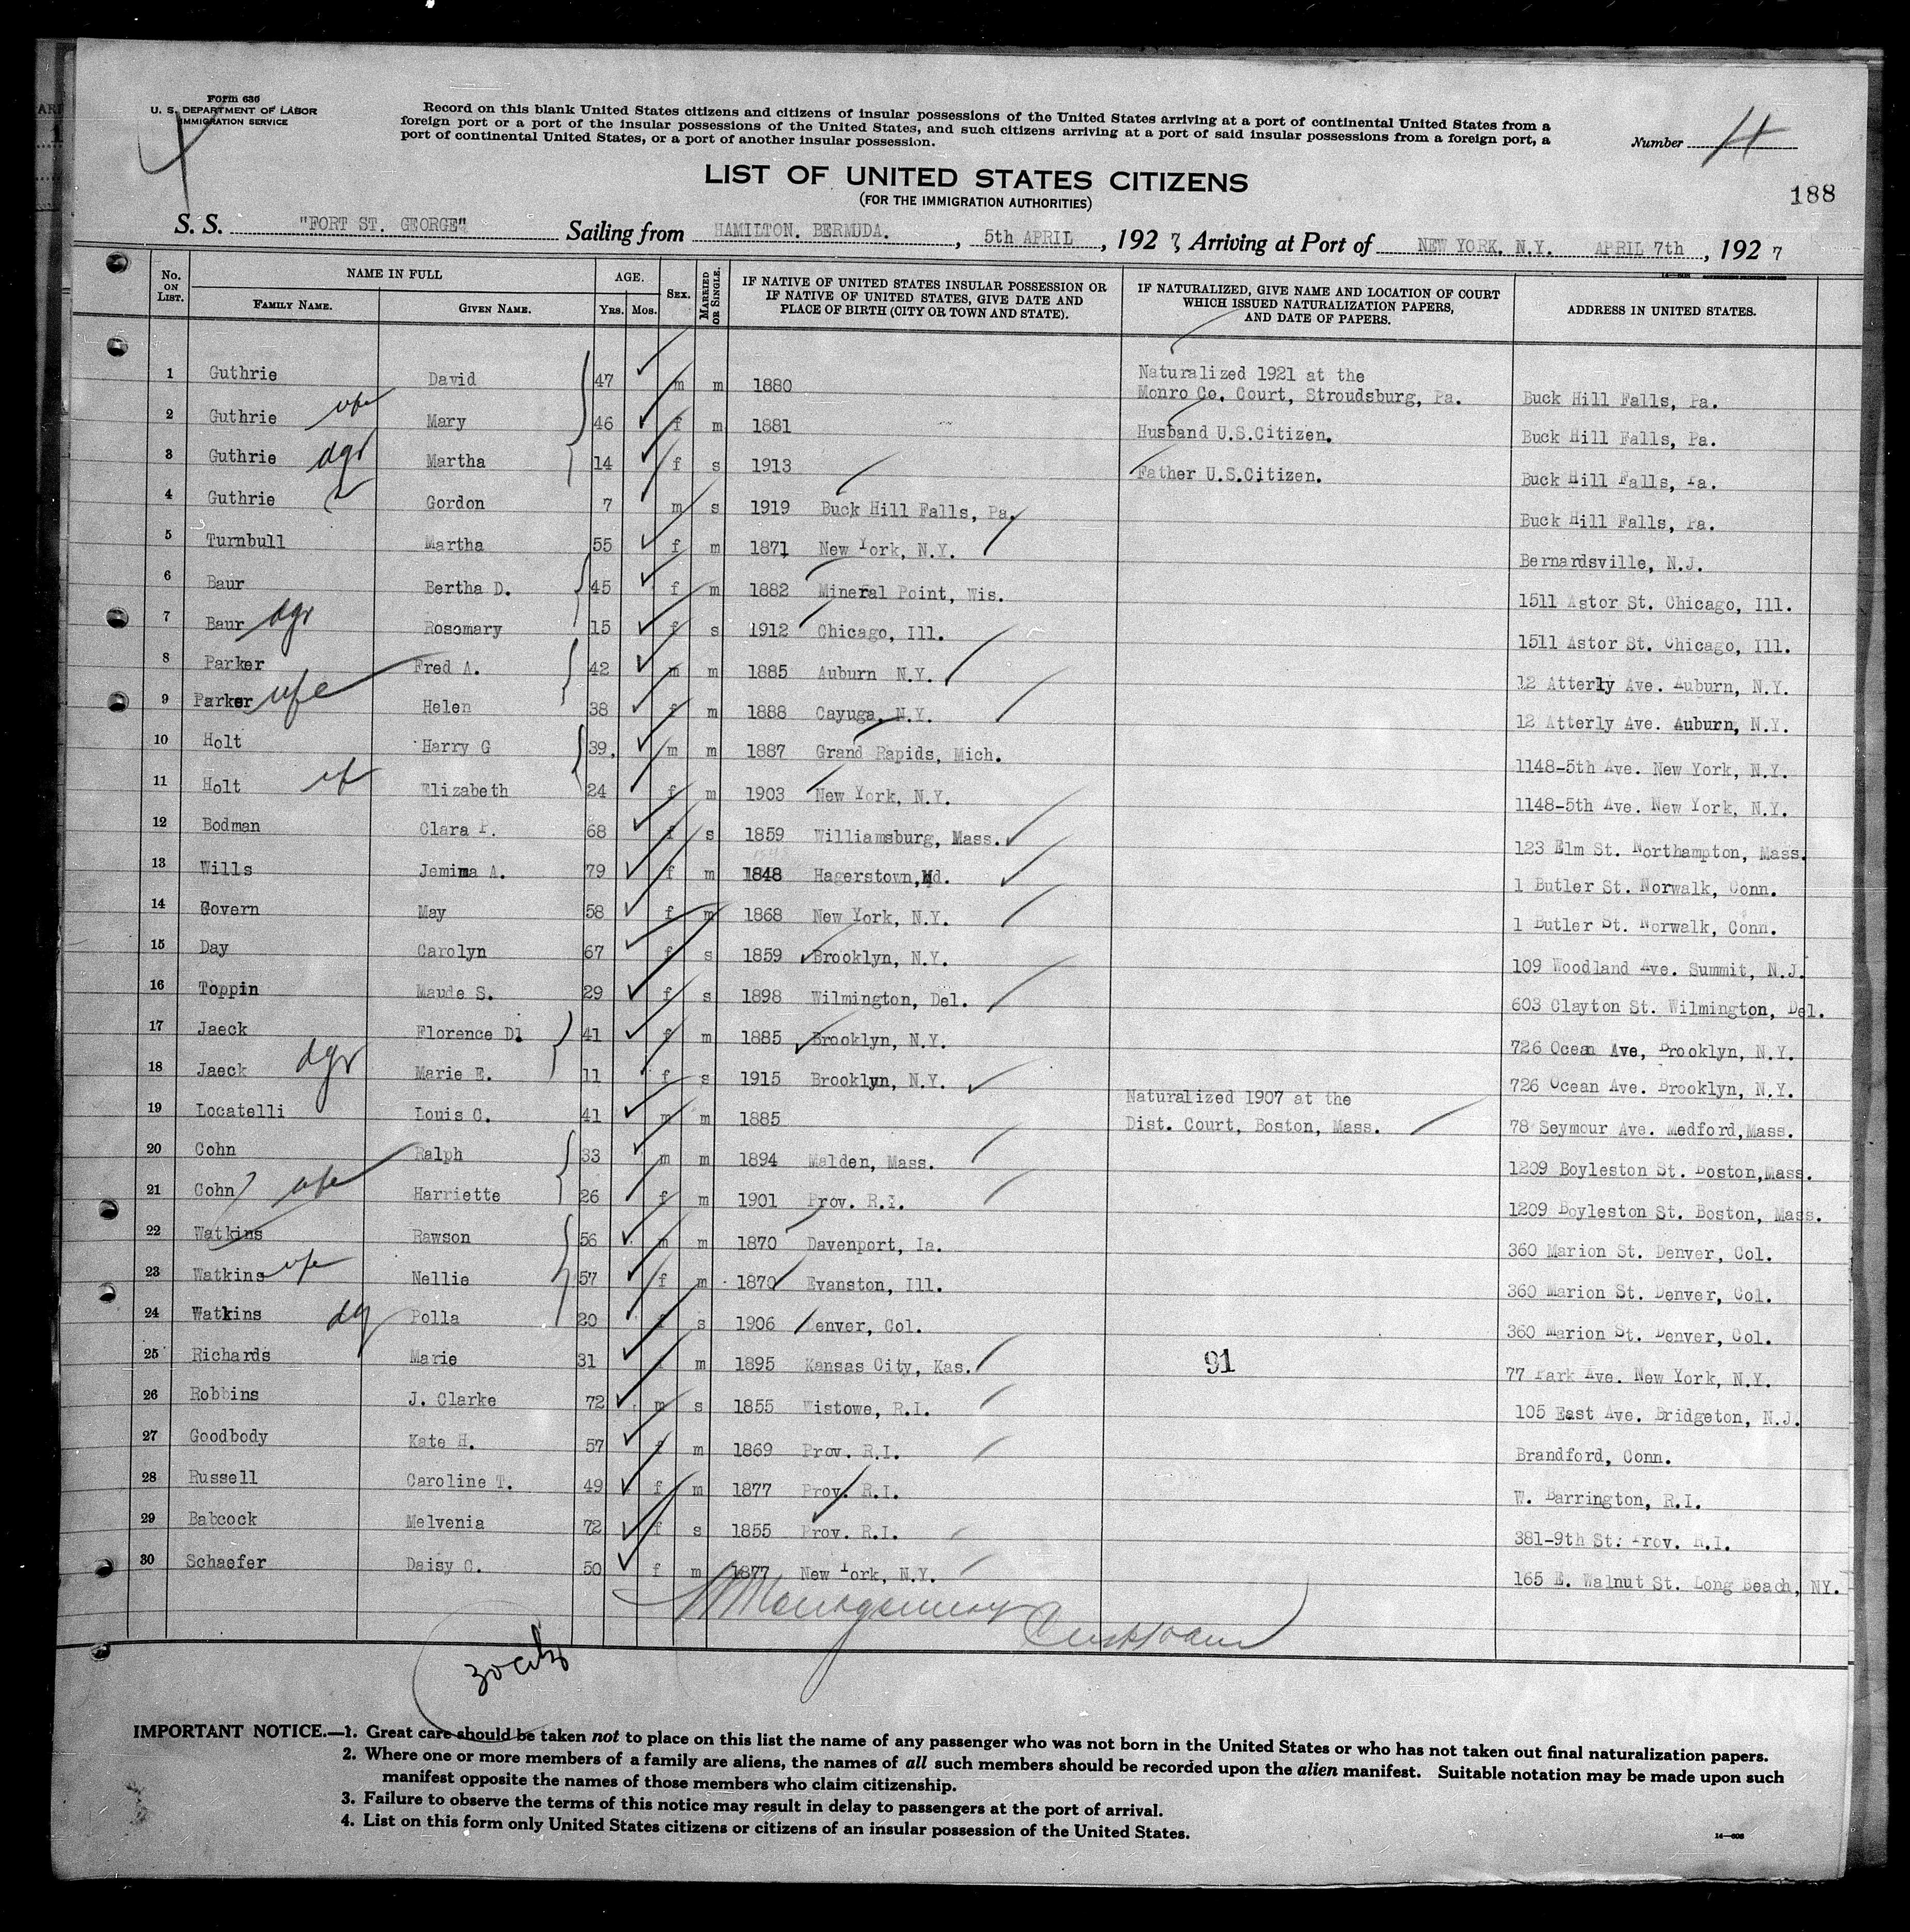 Form 630
U. S. DEPARTMENT OF LABOR
IMMIGRATION SERVICE
Record on this blank United States citizens and citizens of insular possessions of the United States arriving at a port of continental United States from a
foreign port or a port of the insular possessions of the United States, and such citizens arriving at a port of said insular possessions from a foreign port, a
port of continental United States, or a port of another insular possession.
Number 4
188
LIST OF UNITED STATES CITIZENS
(FOR THE IMMIGRATION AUTHORITIES)
S. S. "FORT ST. GEORGE" Sailing from HAMILTON. BERMUDA. , 5th APRIL , 192 7, Arriving at Port of NEW YORK, N.Y. APRIL 7th , 192 7
No. ON LIST. NAME IN FULL FAMILY NAME. GIVEN NAME. AGE. YRS. MOS. SEX. MARRIED OR SINGLE. IF NATIVE OF UNITED STATES INSULAR POSSESSION OR IF NATIVE OF UNITED STATES, GIVE DATE AND PLACE OF BIRTH (CITY OR TOWN AND STATE). IF NATURALIZED, GIVE NAME AND LOCATION OF COURT WHICH ISSUED NATURALIZATION PAPERS, AND DATE OF PAPERS. ADDRESS IN UNITED STATES.
1 Guthrie David 47 m m 1880 Naturalized 1921 at the Monro Co. Court, Stroudsburg, Pa. Buck Hill Falls, Pa.
2 Guthrie wfe Mary 46 f m 1881 Husband U.S.Citizen. Buck Hill Falls, Pa.
3 Guthrie dgr Martha 14 f s 1913 Father U.S.Citizen. Buck Hill Falls, Pa.
4 Guthrie Gordon 7 m s 1919 Buck Hill Falls, Pa. Buck Hill Falls, Pa.
5 Turnbull Martha 55 f m 1871 New York, N.Y. Bernardsville, N.J.
6 Baur Bertha D. 45 f m 1882 Mineral Point, Wis. 1511 Astor St. Chicago, Ill.
7 Baur dgr Rosomary 15 f s 1912 Chicago, Ill. 1511 Astor St. Chicago, Ill.
8 Parker Fred A. 42 m m 1885 Auburn N.Y. 12 Atterly Ave. Auburn, N.Y.
9 Parker wfe Helen 38 f m 1888 Cayuga, N.Y. 12 Atterly Ave. Auburn, N.Y.
10 Holt Harry G 39. m m 1887 Grand Rapids, Mich. 1148-5th Ave. New York, N.Y.
11 Holt wf Elizabeth 24 f m 1903 New York, N.Y. 1148-5th Ave. New York, N.Y.
12 Bodman Clara P. 68 f s 1859 Williamsburg, Mass. 123 Elm St. Northampton, Mass.
13 Wills Jemima A. 79 f m 1848 Hagerstown, Md. 1 Butler St. Norwalk, Conn.
14 Govern May 58 f m 1868 New York, N.Y. 1 Butler St. Norwalk, Conn.
15 Day Carolyn 67 f s 1859 Brooklyn, N.Y. 109 Woodland Ave. Summit, N.J.
16 Toppin Maude S. 29 f s 1898 Wilmington, Del. 603 Clayton St. Wilmington, Del.
17 Jaeck Florence D. 41 f m 1885 Brooklyn, N.Y. 726 Ocean Ave, Brooklyn, N.Y.
18 Jaeck dgr Marie E. 11 f s 1915 Brooklyn, N.Y. 726 Ocean Ave. Brooklyn, N.Y.
19 Locatelli Louis C. 41 m m 1885 Naturalized 1907 at the Dist. Court, Boston, Mass. 78 Seymour Ave. Medford,Mass.
20 Cohn Ralph 33 m m 1894 Malden, Mass. 1209 Boyleston St. Boston,Mass.
21 Cohn wfe Harriette 26 f m 1901 Prov. R.I. 1209 Boyleston St. Boston, Mass.
22 Watkins Rawson 56 m m 1870 Davenport, Ia. 360 Marion St. Denver, Col.
23 Watkins wfe Nellie 57 f m 1870 Evanston, Ill. 360 Marion St. Denver, Col.
24 Watkins dg Polla 20 f s 1906 Denver, Col. 360 Marion St. Denver, Col.
25 Richards Marie 31 f m 1895 Kansas City, Kas. 91 77 Park Ave. New York, N.Y.
26 Robbins J. Clarke 72 m s 1855 Wistowe, R.I. 105 East Ave. Bridgeton, N.J.
27 Goodbody Kate H. 57 f m 1869 Prov. R.I. Brandford, Conn.
28 Russell Caroline T. 49 f m 1877 Prov. R.I. W. Barrington, R.I.
29 Babcock Melvenia 72 f s 1855 Prov. R.I. 381-9th St. Prov. R.I.
30 Schaefer Daisy C. 50 f m 1877 New York, N.Y. 165 E. Walnut St. Long Beach, NY.
Montgomery
30 citz
IMPORTANT NOTICE.—1. Great care should be taken not to place on this list the name of any passenger who was not born in the United States or who has not taken out final naturalization papers.
2. Where one or more members of a family are aliens, the names of all such members should be recorded upon the alien manifest. Suitable notation may be made upon such
manifest opposite the names of those members who claim citizenship.
3. Failure to observe the terms of this notice may result in delay to passengers at the port of arrival.
4. List on this form only United States citizens or citizens of an insular possession of the United States.